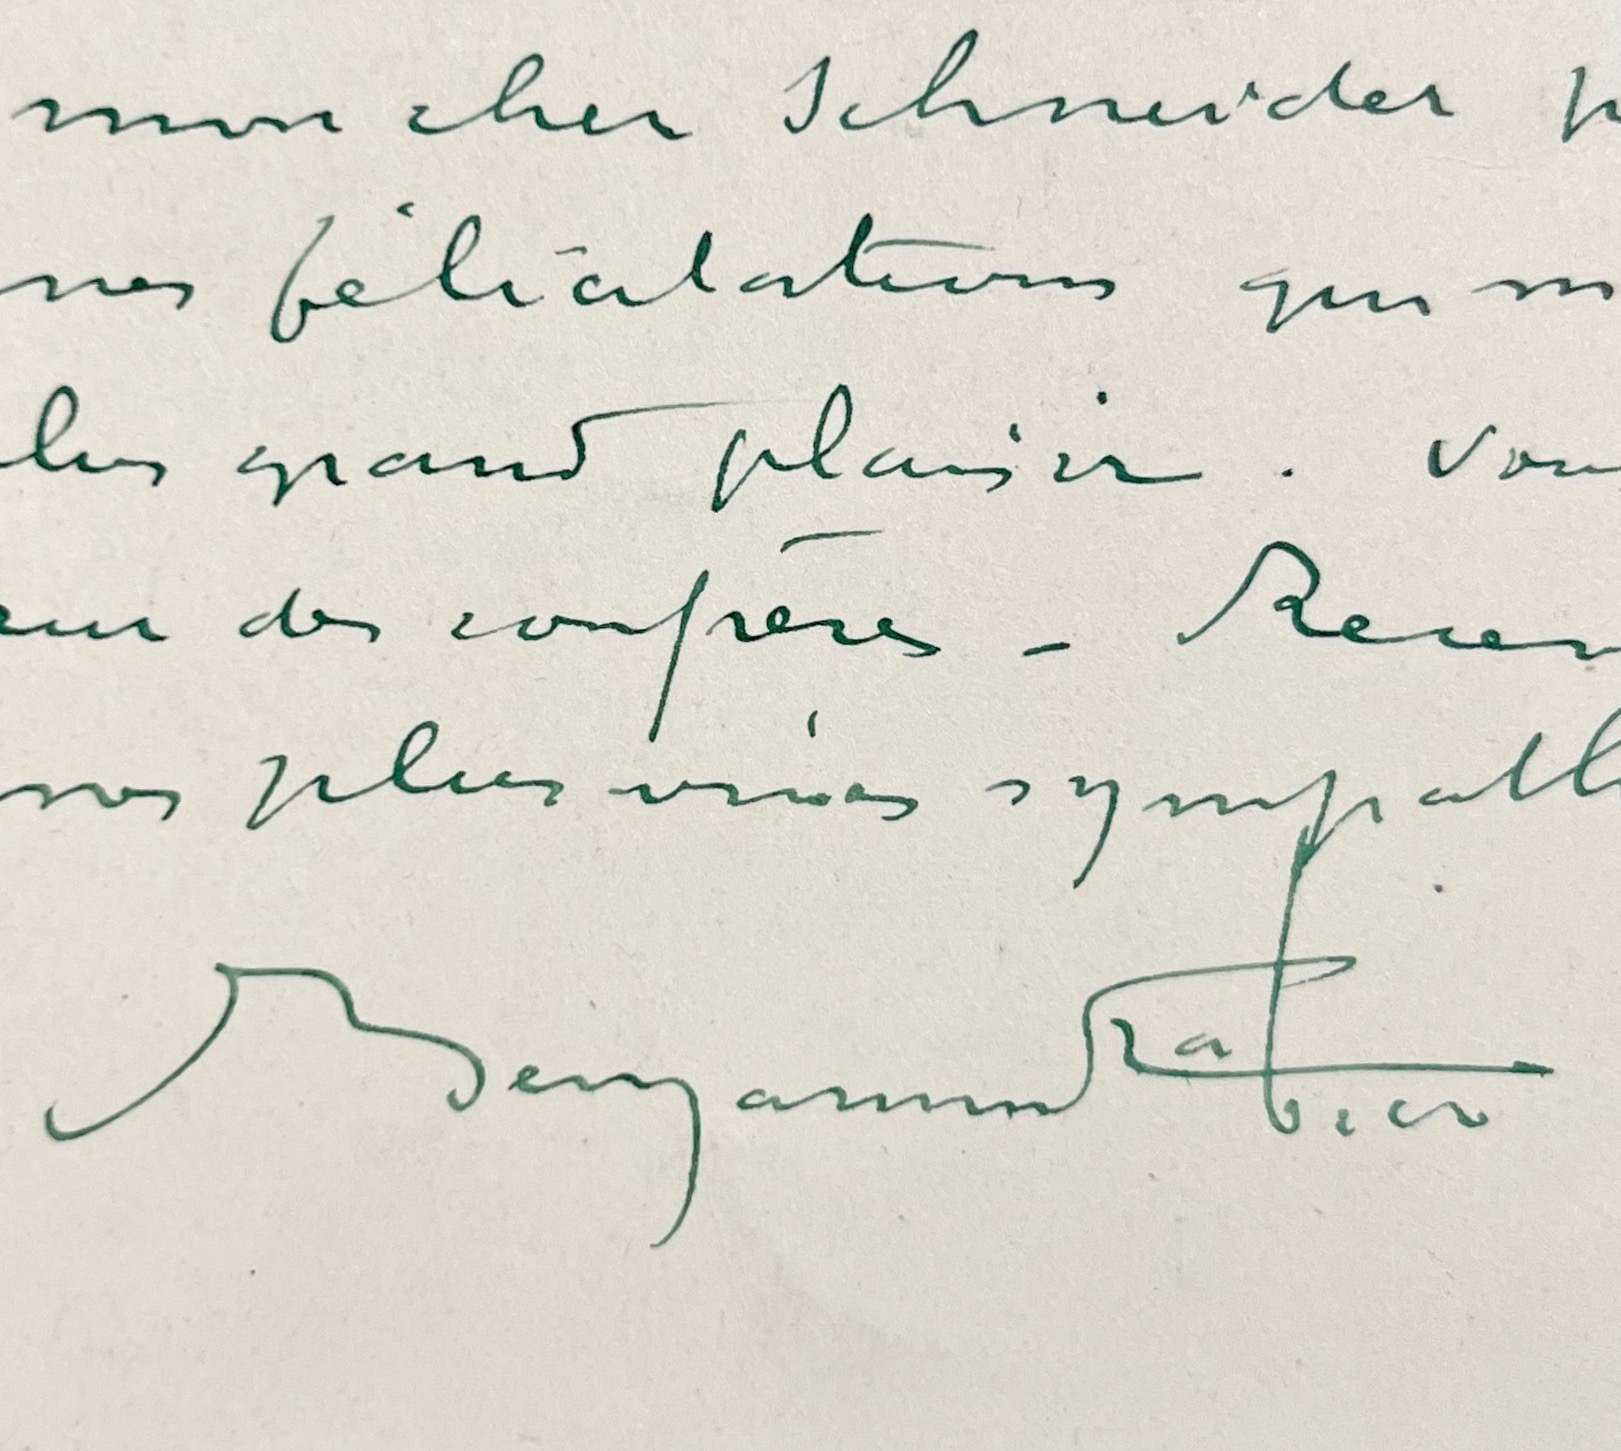 mon cher Schneider p
nes félicitations qui m
lus grand plaisir. Vou
eur des confrères - Recev
nos plus vives sympath
Benjamin Rabier